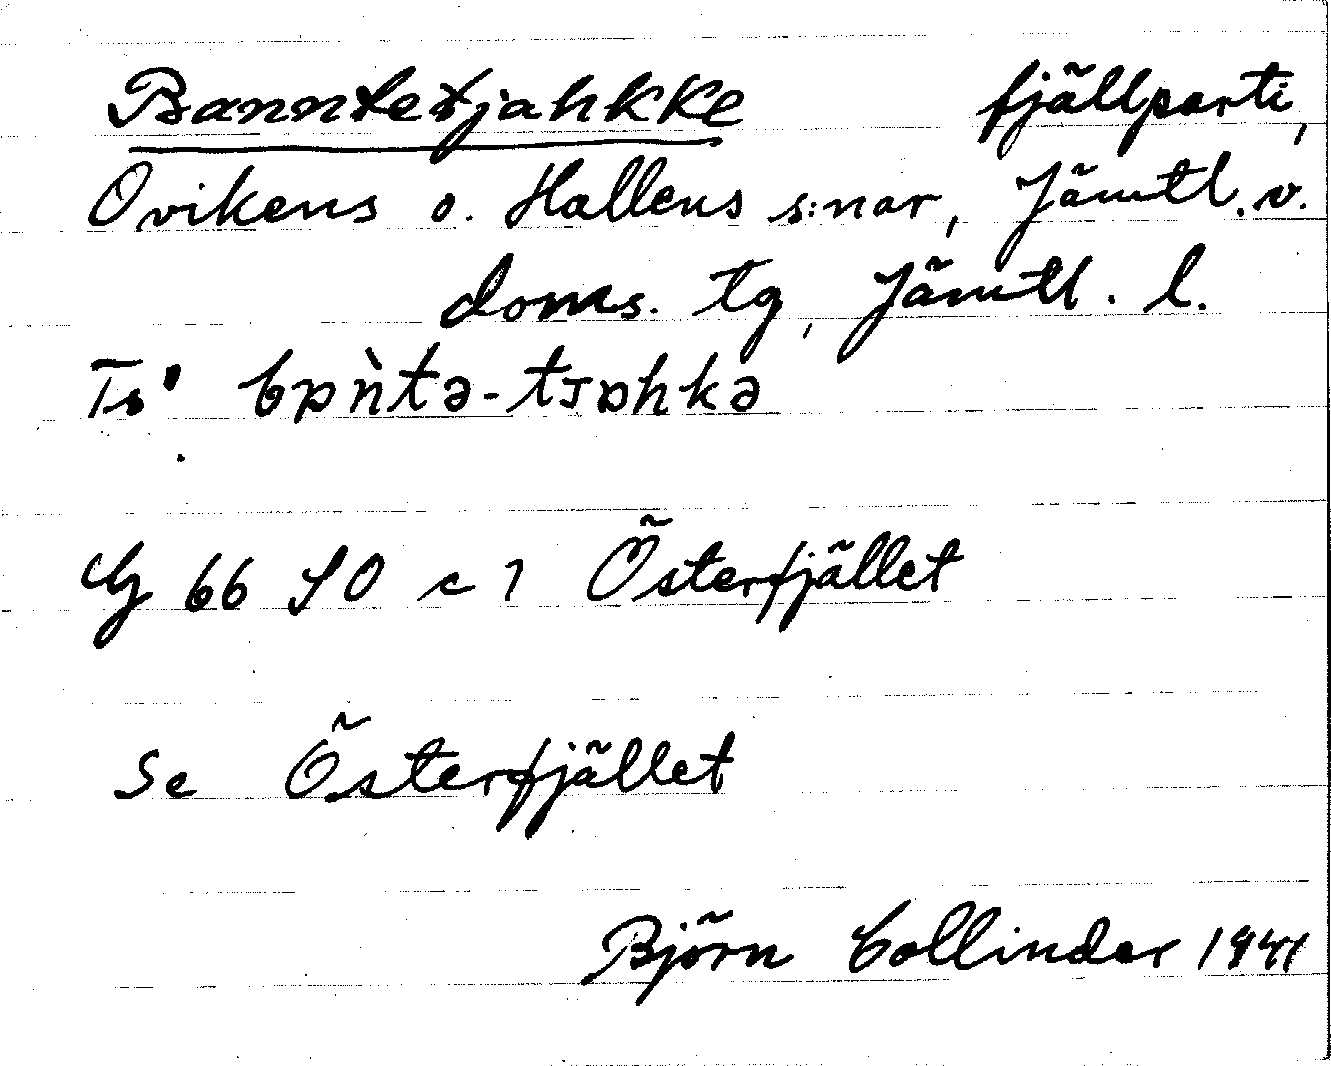 Banntetjahkke fjällparti,
Ovikens o. Hallens s:nar, Jämtl. v.
doms. tg, Jämtl. l.
bɒǹtə-tjɒhkə
66 SO c 1 Österfjället
Se Österfjället
Björn Collinder 1941